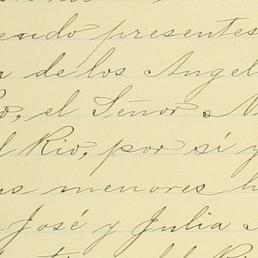 endo presentes
a de los Angel
o, el Señor N
l Rio, por sí y
us menores h
José y Julia